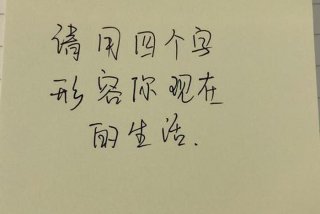 请用四个字
形容你现在
的生活.